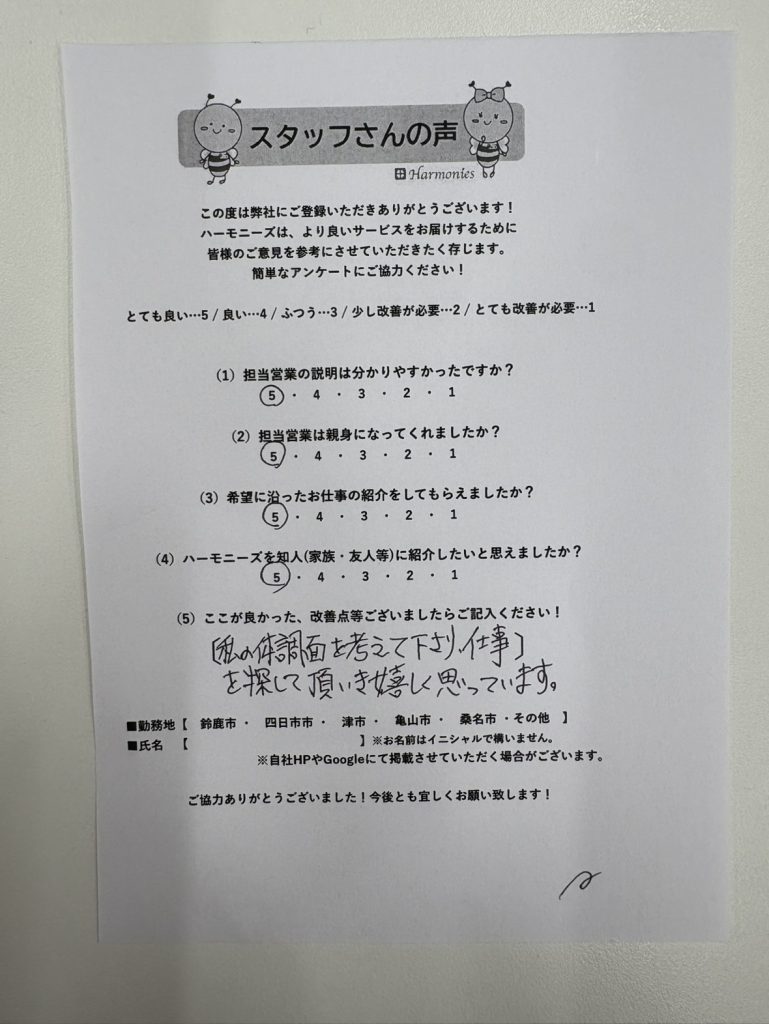 スタッフさんの声
Harmonies
この度は弊社にご登録いただきありがとうございます！
ハーモニーズは、より良いサービスをお届けするために
皆様のご意見を参考にさせていただきたく存じます。
簡単なアンケートにご協力ください！
とても良い…5 / 良い…4 / ふつう…3 / 少し改善が必要…2 / とても改善が必要…1
(1) 担当営業の説明は分かりやすかったですか？
5 ・ 4 ・ 3 ・ 2 ・ 1
(2) 担当営業は親身になってくれましたか？
5 ・ 4 ・ 3 ・ 2 ・ 1
(3) 希望に沿ったお仕事の紹介をしてもらえましたか？
5 ・ 4 ・ 3 ・ 2 ・ 1
(4) ハーモニーズを知人(家族・友人等)に紹介したいと思えましたか？
5 ・ 4 ・ 3 ・ 2 ・ 1
(5) ここが良かった、改善点等ございましたらご記入ください！
[私の体調面を考えて下さり、仕事]
を探して頂いき嬉しく思っています。
■勤務地【 鈴鹿市 ・ 四日市市 ・ 津市 ・ 亀山市 ・ 桑名市 ・その他 】
■氏名 【 】※お名前はイニシャルで構いません。
※自社HPやGoogleにて掲載させていただく場合がございます。
ご協力ありがとうございました！今後とも宜しくお願い致します！